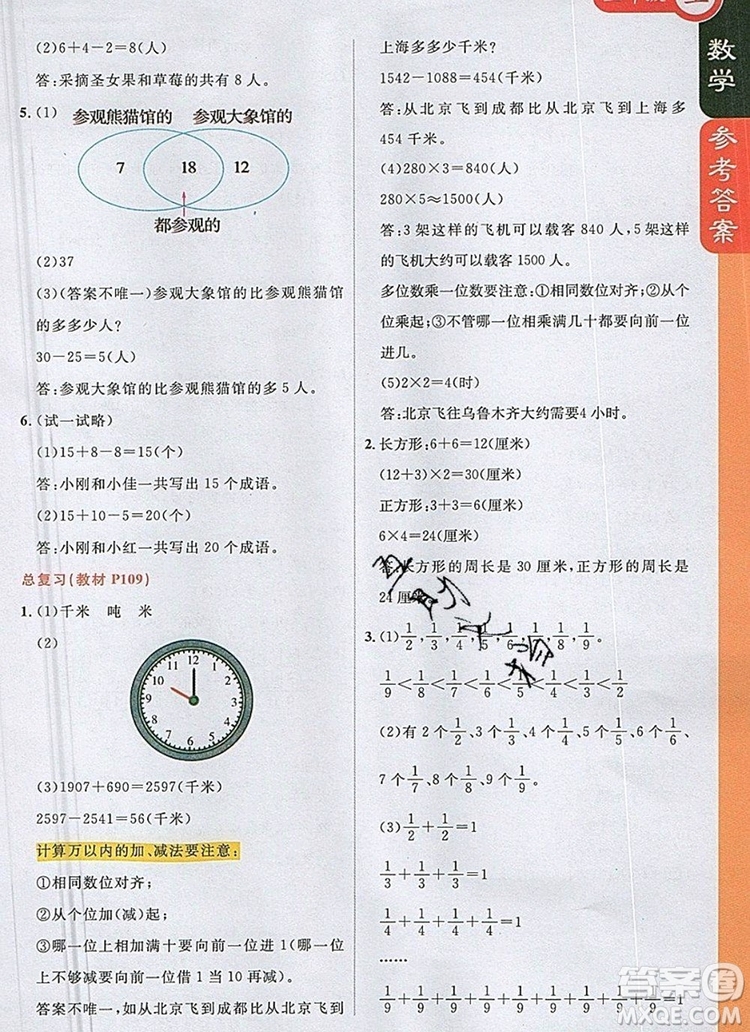 (2)6+4-2=8(人)
答:采摘圣女果和草莓的共有 8 人。
5.(1) 参观熊猫馆的 参观大象馆的
7 18 12
都参观的
(2)37
(3)(答案不唯一)参观大象馆的比参观熊猫馆
的多多少人?
30-25=5(人)
答:参观大象馆的比参观熊猫馆的多 5 人。
6.(试一试略)
(1)15+8-8=15(个)
答:小刚和小佳一共写出 15 个成语。
(2)15+10-5=20(个)
答:小刚和小红一共写出 20 个成语。
总复习(教材 P109)
1.(1)千米 吨 米
(2)
12
1
2
3
4
5
6
7
8
9
10
11
(3)1907+690=2597(千米)
2597-2541=56(千米)
计算万以内的加、减法要注意:
①相同数位对齐;
②从个位加(减)起;
③哪一位上相加满十要向前一位进 1,哪一位
上不够减要向前一位借 1 当 10 再减。
答案不唯一,如从北京飞到成都比从北京飞到
上海多多少千米?
1542-1088=454(千米)
答:从北京飞到成都比从北京飞到上海多
454 千米。
(4)280×3=840(人)
280×5≈1500(人)
答:3 架这样的飞机可以载客 840 人,5 架这样
的飞机大约可以载客 1500 人。
多位数乘一位数要注意:①相同数位对齐;②从
个位乘起;③不管哪一位相乘满几十都要向前一位
进几。
(5)2×2=4(时)
答:北京飞往乌鲁木齐大约需要 4 小时。
2.长方形:6+6=12(厘米)
(12+3)×2=30(厘米)
正方形:3+3=6(厘米)
6×4=24(厘米)
答:长方形的周长是 30 厘米,正方形的周长是
24 厘米。
3.(1)1/2,1/3,1/4,1/5,1/6,1/7,1/8,1/9。
1/9<1/8<1/7<1/6<1/5<1/4<1/3<1/2
(2)有 2 个 1/2、3 个 1/3、4 个 1/4、5 个 1/5、6 个 1/6、
7 个 1/7、8 个 1/8、9 个 1/9。
(3)1/2+1/2=1
1/3+1/3+1/3=1
1/4+1/4+1/4+1/4=1
……
1/9+1/9+1/9+1/9+1/9+1/9+1/9+1/9+1/9=1
数学
参考答案
答案圈
MXQE.COM